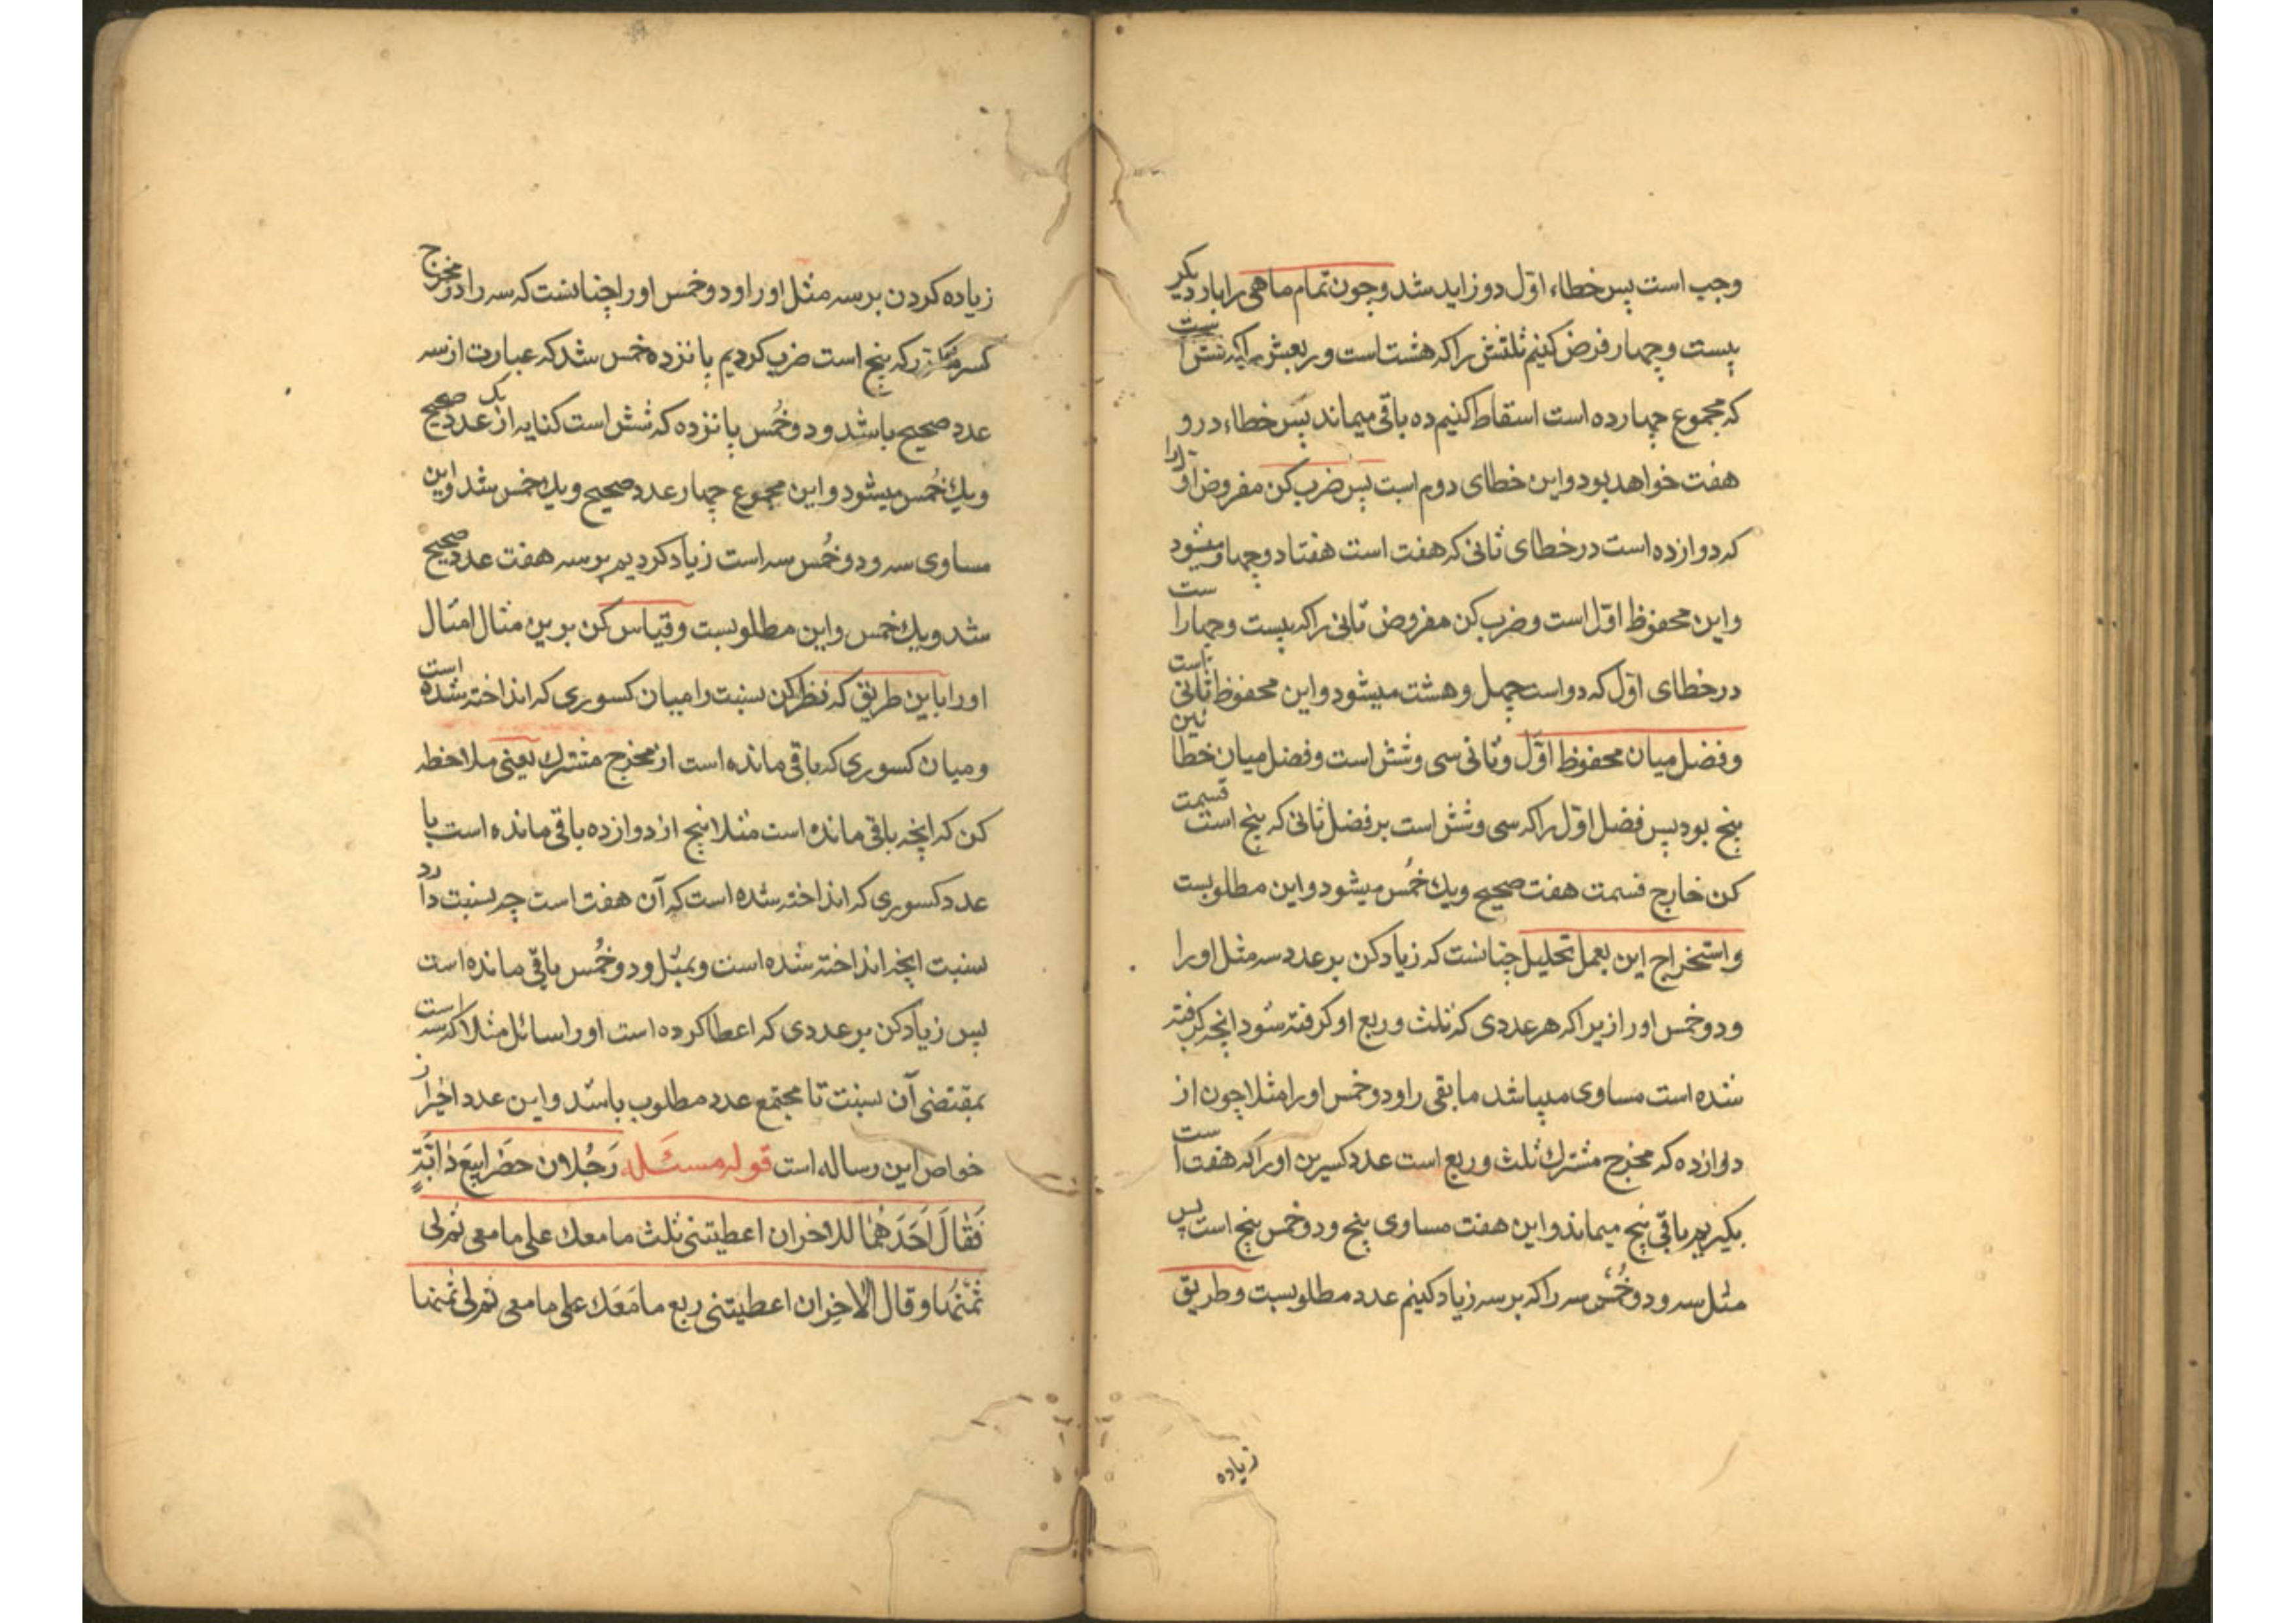 وجب است پس خطاء اوّل دو زاید شد وچون تمام ماهی را بار دیگر
بیست وچهار فرض کنیم ثلثش را که هشت است وربعش را که شش است
که مجموع چهارده است اسقاط کنیم ده باقی میماند پس خطاء درو
هفت خواهد بود واین خطای دوم است پس ضرب کن مفروض اوّل را
که دوازده است در خطای ثانی که هفت است هفتاد وچهار میشود
واین محفوظ اوّل است وضرب کن مفروض ثانی را که بیست وچهار است
در خطای اوّل که دو است چهل وهشت میشود واین محفوظ ثانی است
وفضل میان محفوظ اوّل وثانی سی وشش است وفضل میان خطائین
پنج بود پس فضل اوّل را که سی وشش است بر فضل ثانی که پنج است قسمت
کن خارج قسمت هفت صحیح ویك خُمس میشود واین مطلوبست
واستخراج این بعمل تحلیل چنانست که زیاد کن بر عدد سه مثل او را
ودو خمس او را زیرا که هر عددی که ثلث وربع او گرفته شود انچه گرفته
شده است مساوی میباشد ما بقی را ودو خمس او را مثلا چون از
دوازده که مخرج مشترك ثلث وربع است عدد کسرین او را که هفت است
بگیریم باقی پنج میماند واین هفت مساوی پنج ودو خمس پنج است پس
مثل سه ودو خُمس سه را که بر سه زیاد کنیم عدد مطلوبست وطریق
زیاده
زیاده کردن بر سه مثل او را ودو خمس او را چنانست که سه را در مخرج
کسر که پنج است ضرب کردیم پانزده خمس شد که عبارت از سه
عدد صحیح باشد ودو خُمس پانزده که شش است کنایه از یک عدد صحیح
ویك خُمس میشود واین مجموع چهار عدد صحیح ویك خمس شد واین
مساوی سه ودو خُمس سه است زیاد کردیم بر سه هفت عدد صحیح
شد ویك خمس واین مطلوبست وقیاس کن برین مثال امثال
او را باین طریق که نظر کن نسبت را میان کسوری که انداخته شده است
ومیان کسوری که باقی مانده است از مخرج مشترك یعنی ملاحظه
کن که انچه باقی مانده است مثلا پنج از دوازده باقی مانده است با
عدد کسوری که انداخته شده است که آن هفت است چه نسبت دارد
نسبت انچه انداخته شده است وبمثل ودو خُمس باقی مانده است
پس زیاد کن بر عددی که اعطا کرده است او را سائل مثلا که سه است
بمقتضی آن نسبت تا مجتمع عدد مطلوب باشد واین عدد اخیر از
خواص این رساله است قوله مسئله رَجُلان حضرا بیع دٰابّةٍ
فَقٰالَ اَحَدَهُمٰا للاخر ان اعطیتنی ثلث ما معك علی ما معی تم لی
ثَمَنُهٰا وقال الاخر ان اعطیتنی ربع ما مَعَك علی ما معی تم لی ثمنها